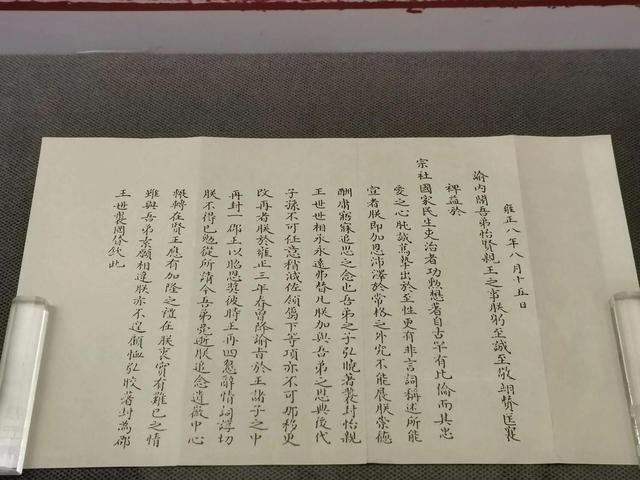 雍正八年八月十五日
諭內閣吾弟怡賢親王之事朕躬至誠至敬翊贊匡襄
裨益於
宗社國家民生吏治者功勲懋著自古罕有比倫而其忠
愛之心肫誠篤摯出於至性更有非言詞稱述所能
宣者朕即加恩沛澤於常格之外究不能展朕崇德
酬庸寤寐追思之念也吾弟之子弘曉著襲封怡親
王世世相承永遠弗替凡朕加與吾弟之恩典後代
子孫不可任意稍減佐領屬下等項亦不可那移更
改再者朕於雍正三年春曾降諭旨於王諸子之中
再封一郡王以昭恩獎彼時王再四懇辭情詞諄切
朕不得已勉從所請今吾弟薨逝朕追念遺徽中心
輾轉在賢王應有加隆之禮在朕衷實有難已之情
雖與吾弟素願相違朕亦不遑顧恤弘晈著封為郡
王世襲罔替欽此